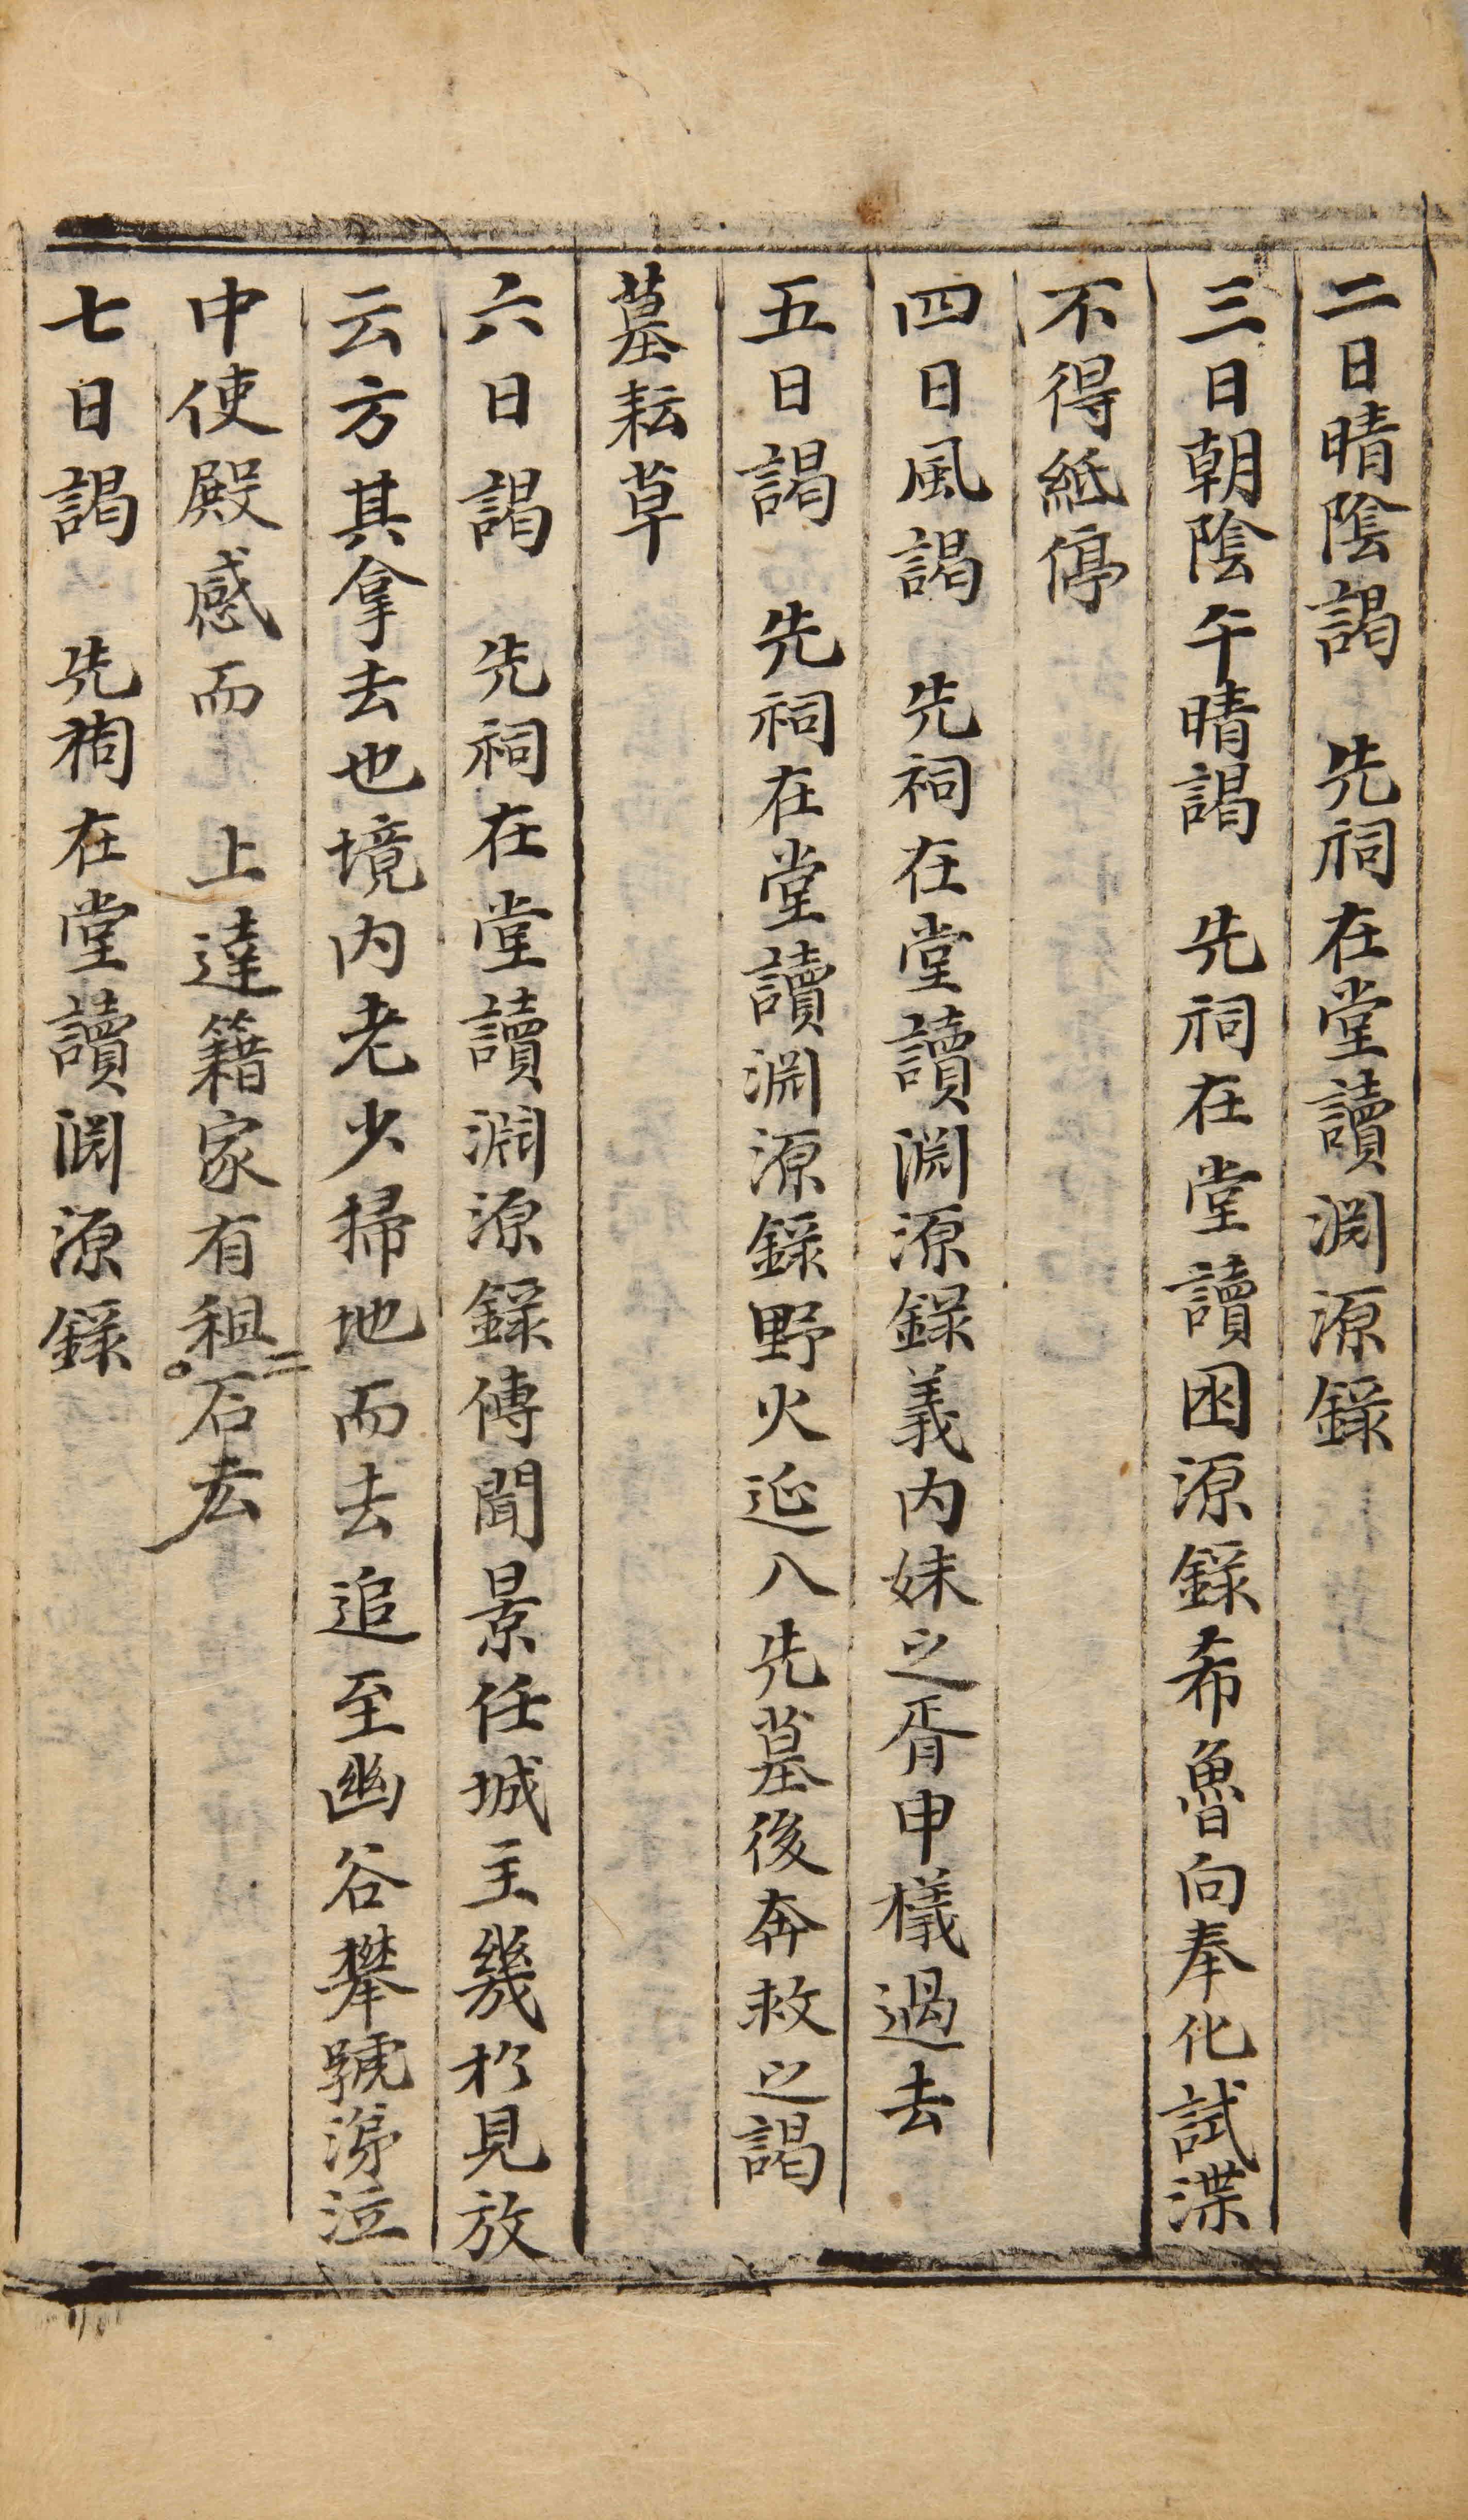 二日晴陰謁　先祠在堂讀渊源錄
三日朝陰午晴謁　先祠在堂讀困源錄希魯向奉化試渫
不得紙停
四日風謁　先祠在堂讀渊源錄義内妹之胥申檥過去
五日謁　先祠在堂讀渊源錄野火延八先墓後奔救之謁
墓耘草
六日謁　先祠在堂讀渊源錄傳聞景任城主幾於見放
云方其拿去也境内老少掃地而去追至幽谷攀號涕泣
中使殿感而　上達籍家有租二石去
七日謁　先祠在堂讀渊源錄